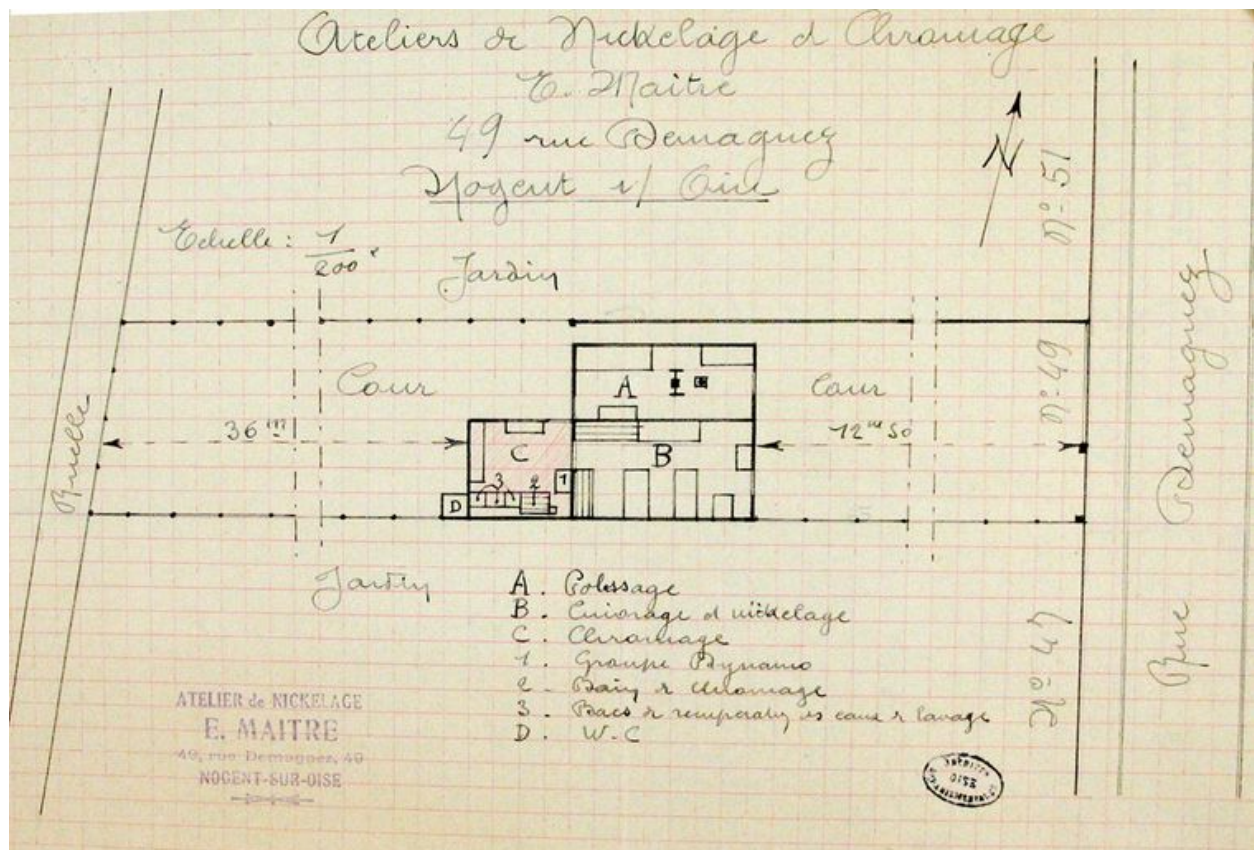 Ateliers de Nickelage et Chromage
E. Maitre
49 rue Demagnez
Nogent s/ Oise
N
Echelle : 1/200e
Jardin
N° 51
Cour
A
Cour
N° 49
Ruelle
36 m
C
B
12 m 50
3
2
1
D
Rue Demagnez
Jardin
N° 47
A. Polissage
B. Cuivrage et nickelage
C. Chromage
1. Groupe Dynamo
2. Bain de chromage
3. Bacs de eaux de lavage
D. W.C
ATELIER de NICKELAGE
E. MAITRE
49, rue Demagnez, 49
NOGENT-SUR-OISE
OISE